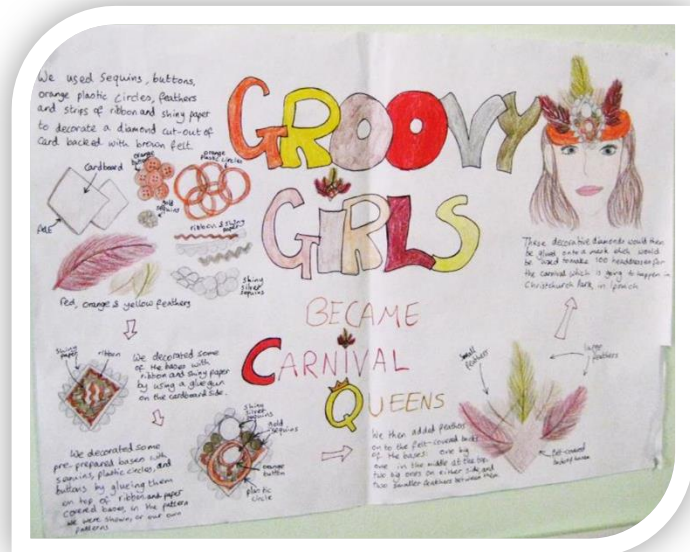 We used sequins, buttons,
orange plastic circles, feathers
and strips of ribbon and shiny paper
to decorate a diamond cut-out of
card backed with brown felt.
Cardboard
felt
orange
buttons
gold
sequins
orange
plastic circles
ribbon & shiny
paper
shiny
silver
sequins
Red, orange & yellow feathers
GROOVY
GIRLS
BECAME
CARNIVAL
QUEENS
shiny
paper
ribbon
We decorated some
of the bases with
ribbon and shiny paper
by using a glue gun
on the cardboard side.
We decorated some
pre-prepared bases with
sequins, plastic circles, and
buttons by glueing them
on top of ribbon and paper
covered bases, in the pattern
we were shown, or our own
patterns
shiny
silver
sequins
gold
sequins
orange
button
plastic
circle
We then added feathers
on to the felt-covered backs
of the bases: one by
one in the middle at the top,
two big ones on either side and
two smaller feathers between them
small
feathers
large
feathers
felt-covered
These decorative diamonds would then
be glued onto a mask which would
be used to make 100 headdresses for
the carnival which is going to happen in
Christchurch Park, in Ipswich